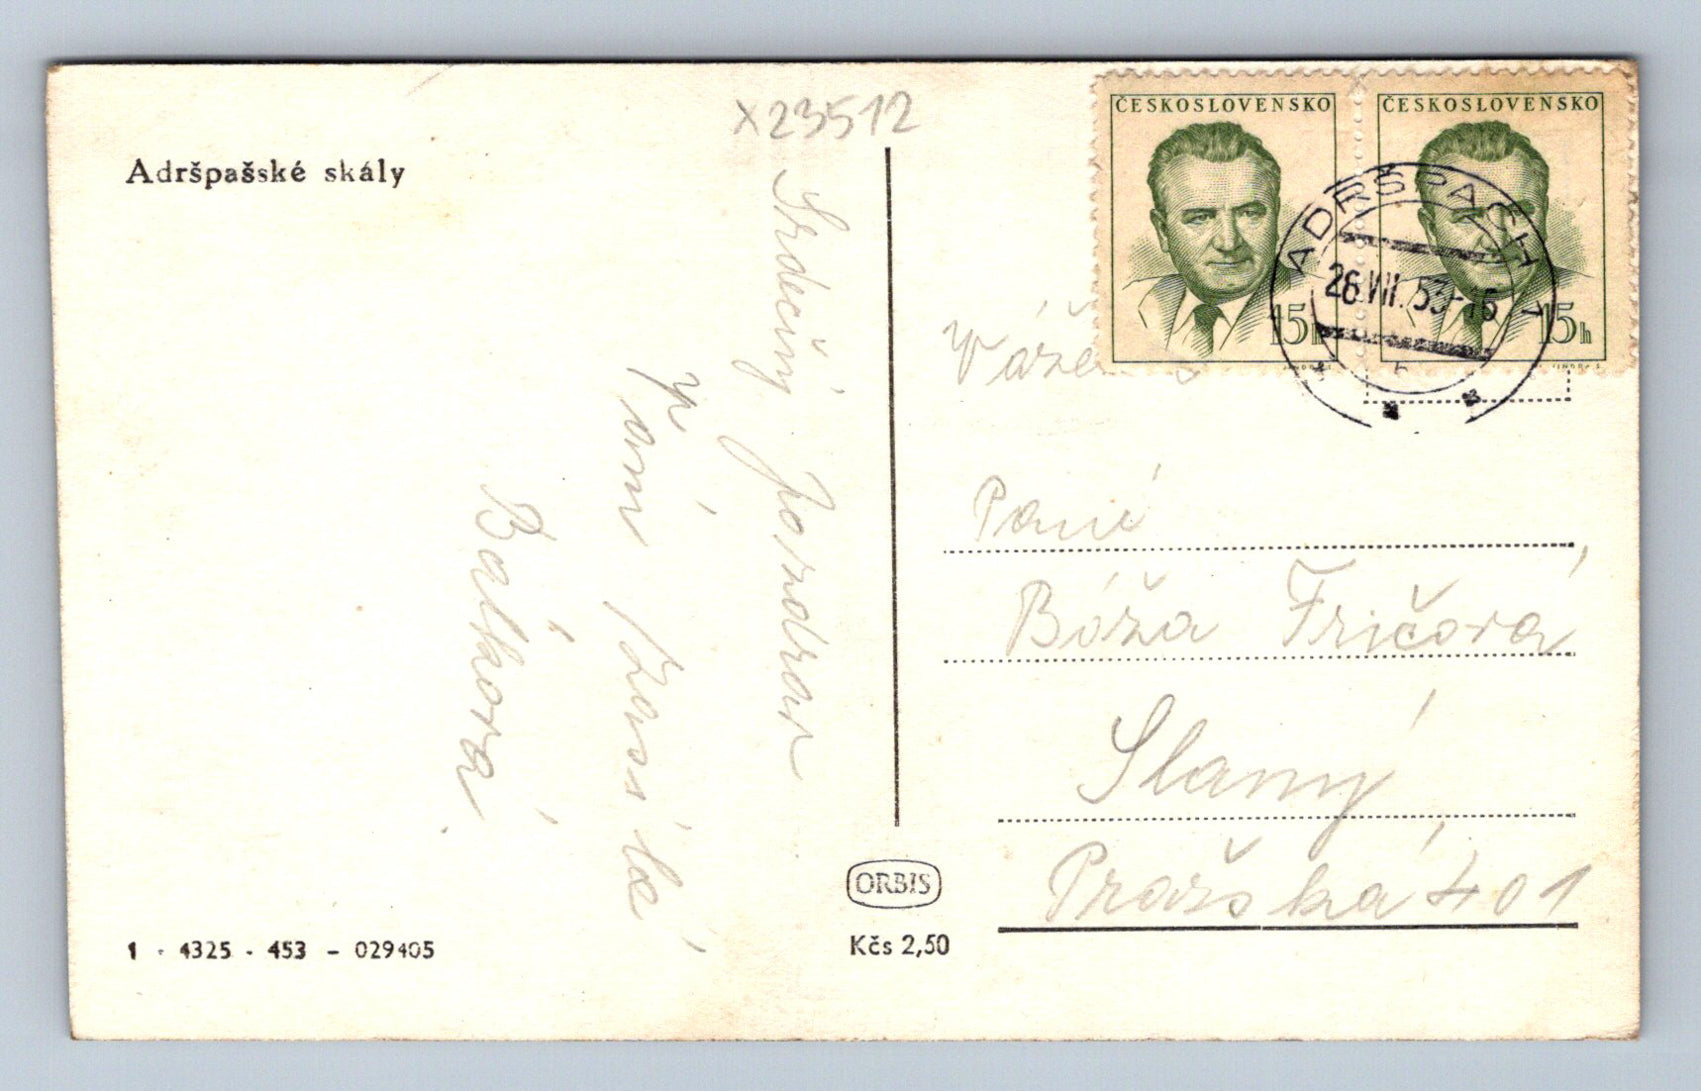 x23512
Adršpašské skály
Srdečný pozdrav
Vám
Balková
1 - 4325 - 453 - 029405
ORBIS
Kčs 2,50
ČESKOSLOVENSKO
15h
ČESKOSLOVENSKO
15h
ADRŠPACH
26.VII.53-16
Paní
Bóža Fričová
Slaný
Pražská 401